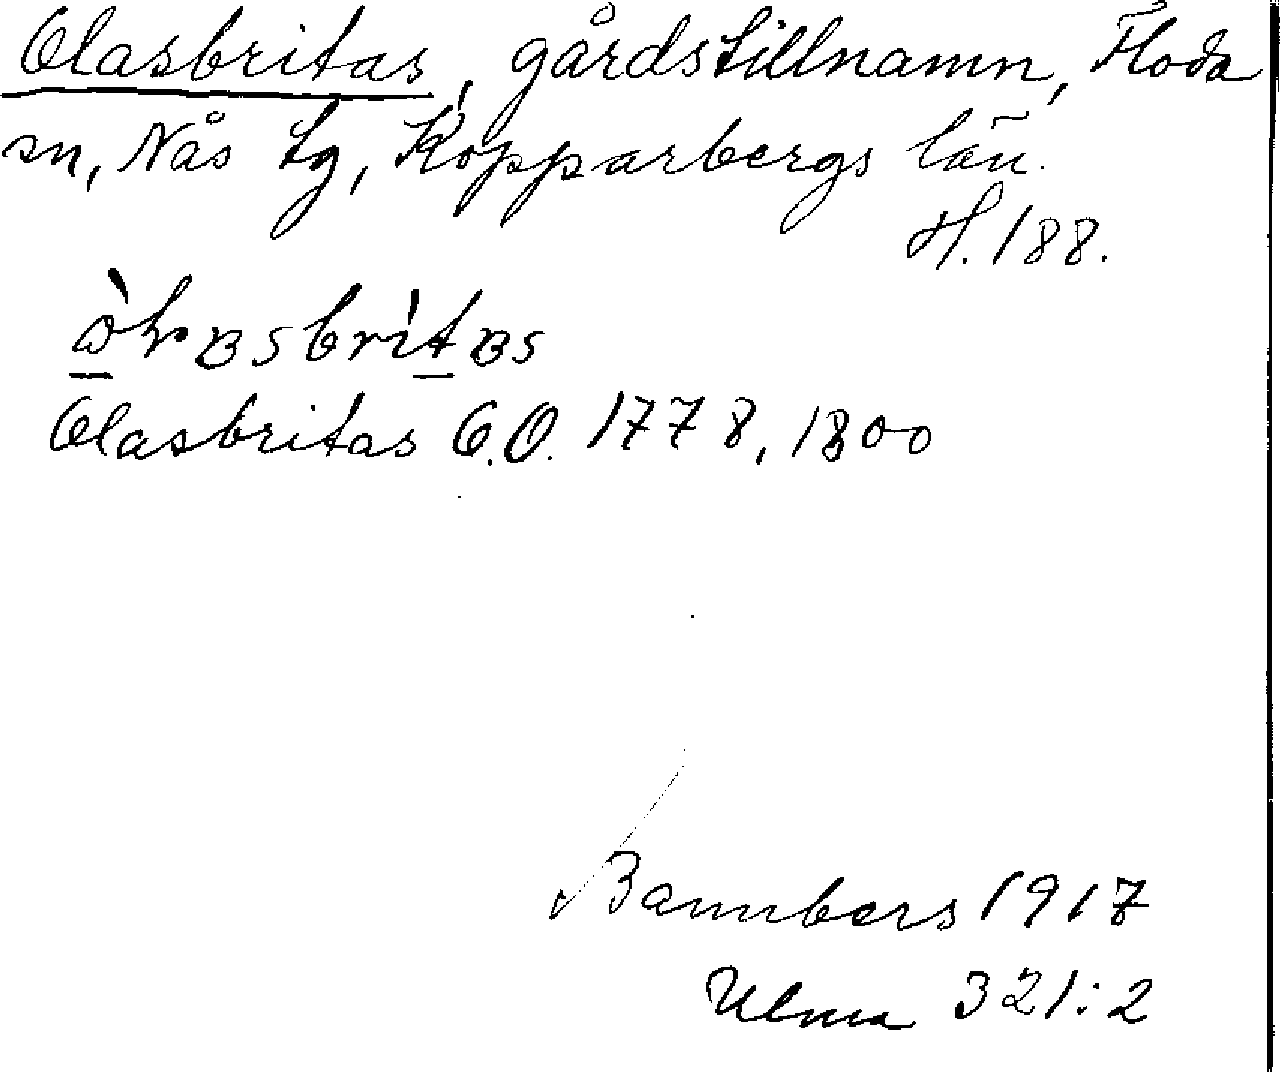 Olasbritas, gårdstillnamn, Floda
sn, Nås tg, Kopparbergs län.
H. 188.
Olasbritas G.O. 1778, 1800
Bannbers 1917
Ulma 321:2